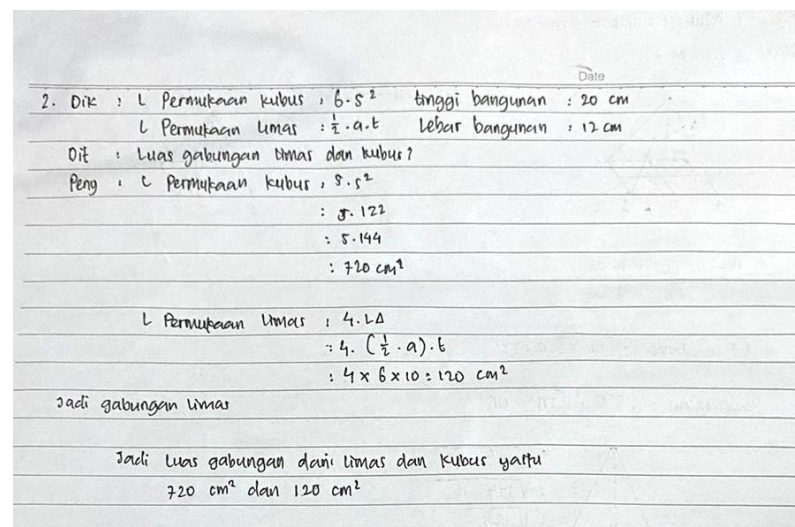 Date
2. Dik : L Permukaan kubus : 6.s² tinggi bangunan : 20 cm
L Permukaan Limas : ½.a.t Lebar bangunan : 12 cm
Dit : Luas gabungan limas dan kubus?
Peng : L Permukaan kubus : 5.s²
: 5.122
: 5.144
: 720 cm²
L Permukaan Limas : 4.LΔ
: 4.(½.a).t
: 4 x 6 x 10 : 120 cm²
Jadi gabungan limas
Jadi Luas gabungan dari limas dan kubus yaitu
720 cm² dan 120 cm²